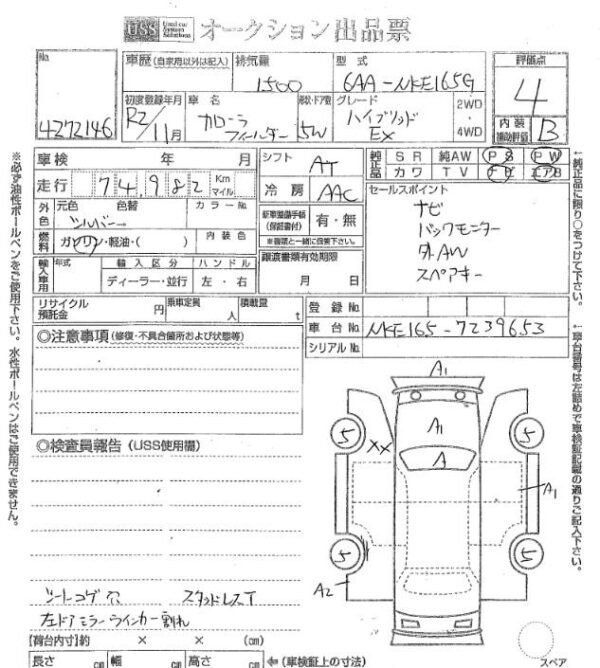 USS Used car System Solutions オークション出品票
No. 4272146
車歴 (自家用以外は記入) 排気量 1500 型式 6AA-NKE165G
評価点 4
初度登録年月 R2/11月 車名 カローラフィールダー 形状・ドア数 5W グレード ハイブリッド EX 2WD・4WD
内装補助評価 B
車検 年 月
シフト AT
純正品 SR 純AW PS PW
カワ TV エアB
走行 74,982 Km マイル
冷房 AAC
セールスポイント
外色 元色 色替 カラーNo.
シルバー
ナビ
バックモニター
外AW
スペアキー
新車整備手帳(保証書付) 有・無
※書類と一緒に保管下さい
燃料 ガソリン・軽油・( ) 内装色
輸入車用 年式 輸入区分 ハンドル
ディーラー・並行 左・右
譲渡書類有効期限
月 日
リサイクル預託金 円 乗車定員 人 積載量 t
登録No.
車台No. NKE165-7239653
シリアルNo.
◎注意事項 (修復・不具合箇所および状態等)
A1
A1
A
XX
5
5
A1
5
5
A2
◎検査員報告 (USS使用欄)
シートコゲ穴 スタッドレスT
左ドアミラーウインカー割れ
【荷台内寸】約 × × (cm)
長さ cm 幅 cm 高さ cm ⇐(車検証上の寸法)
スペア
※必ず油性ボールペンをご使用下さい。水性ボールペンはご使用できません。
↑純正品に限り○をつけて下さい。
↑車台番号は左詰めで車検証記載の通りご記入下さい。